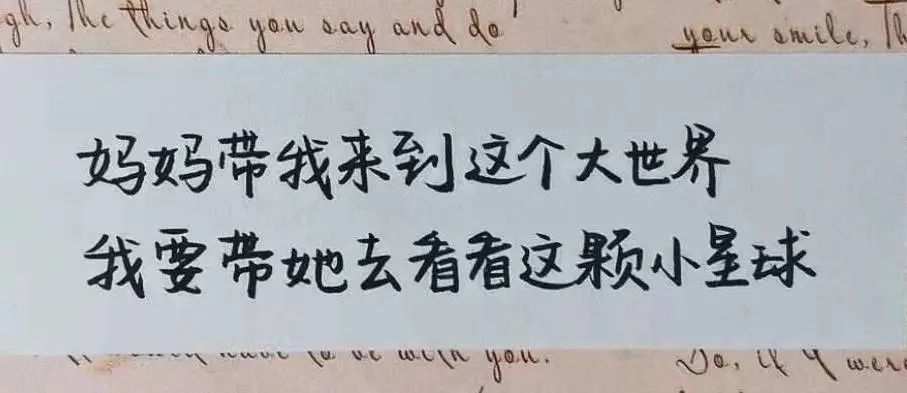 gh, The things you say and do
your smile, Th
妈妈带我来到这个大世界
我要带她去看看这颗小星球
have to be with you.
Do, if I were